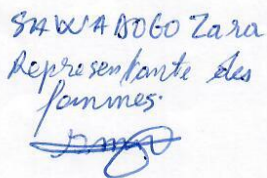 SAWADOGO Zara
Représentante des
femmes.